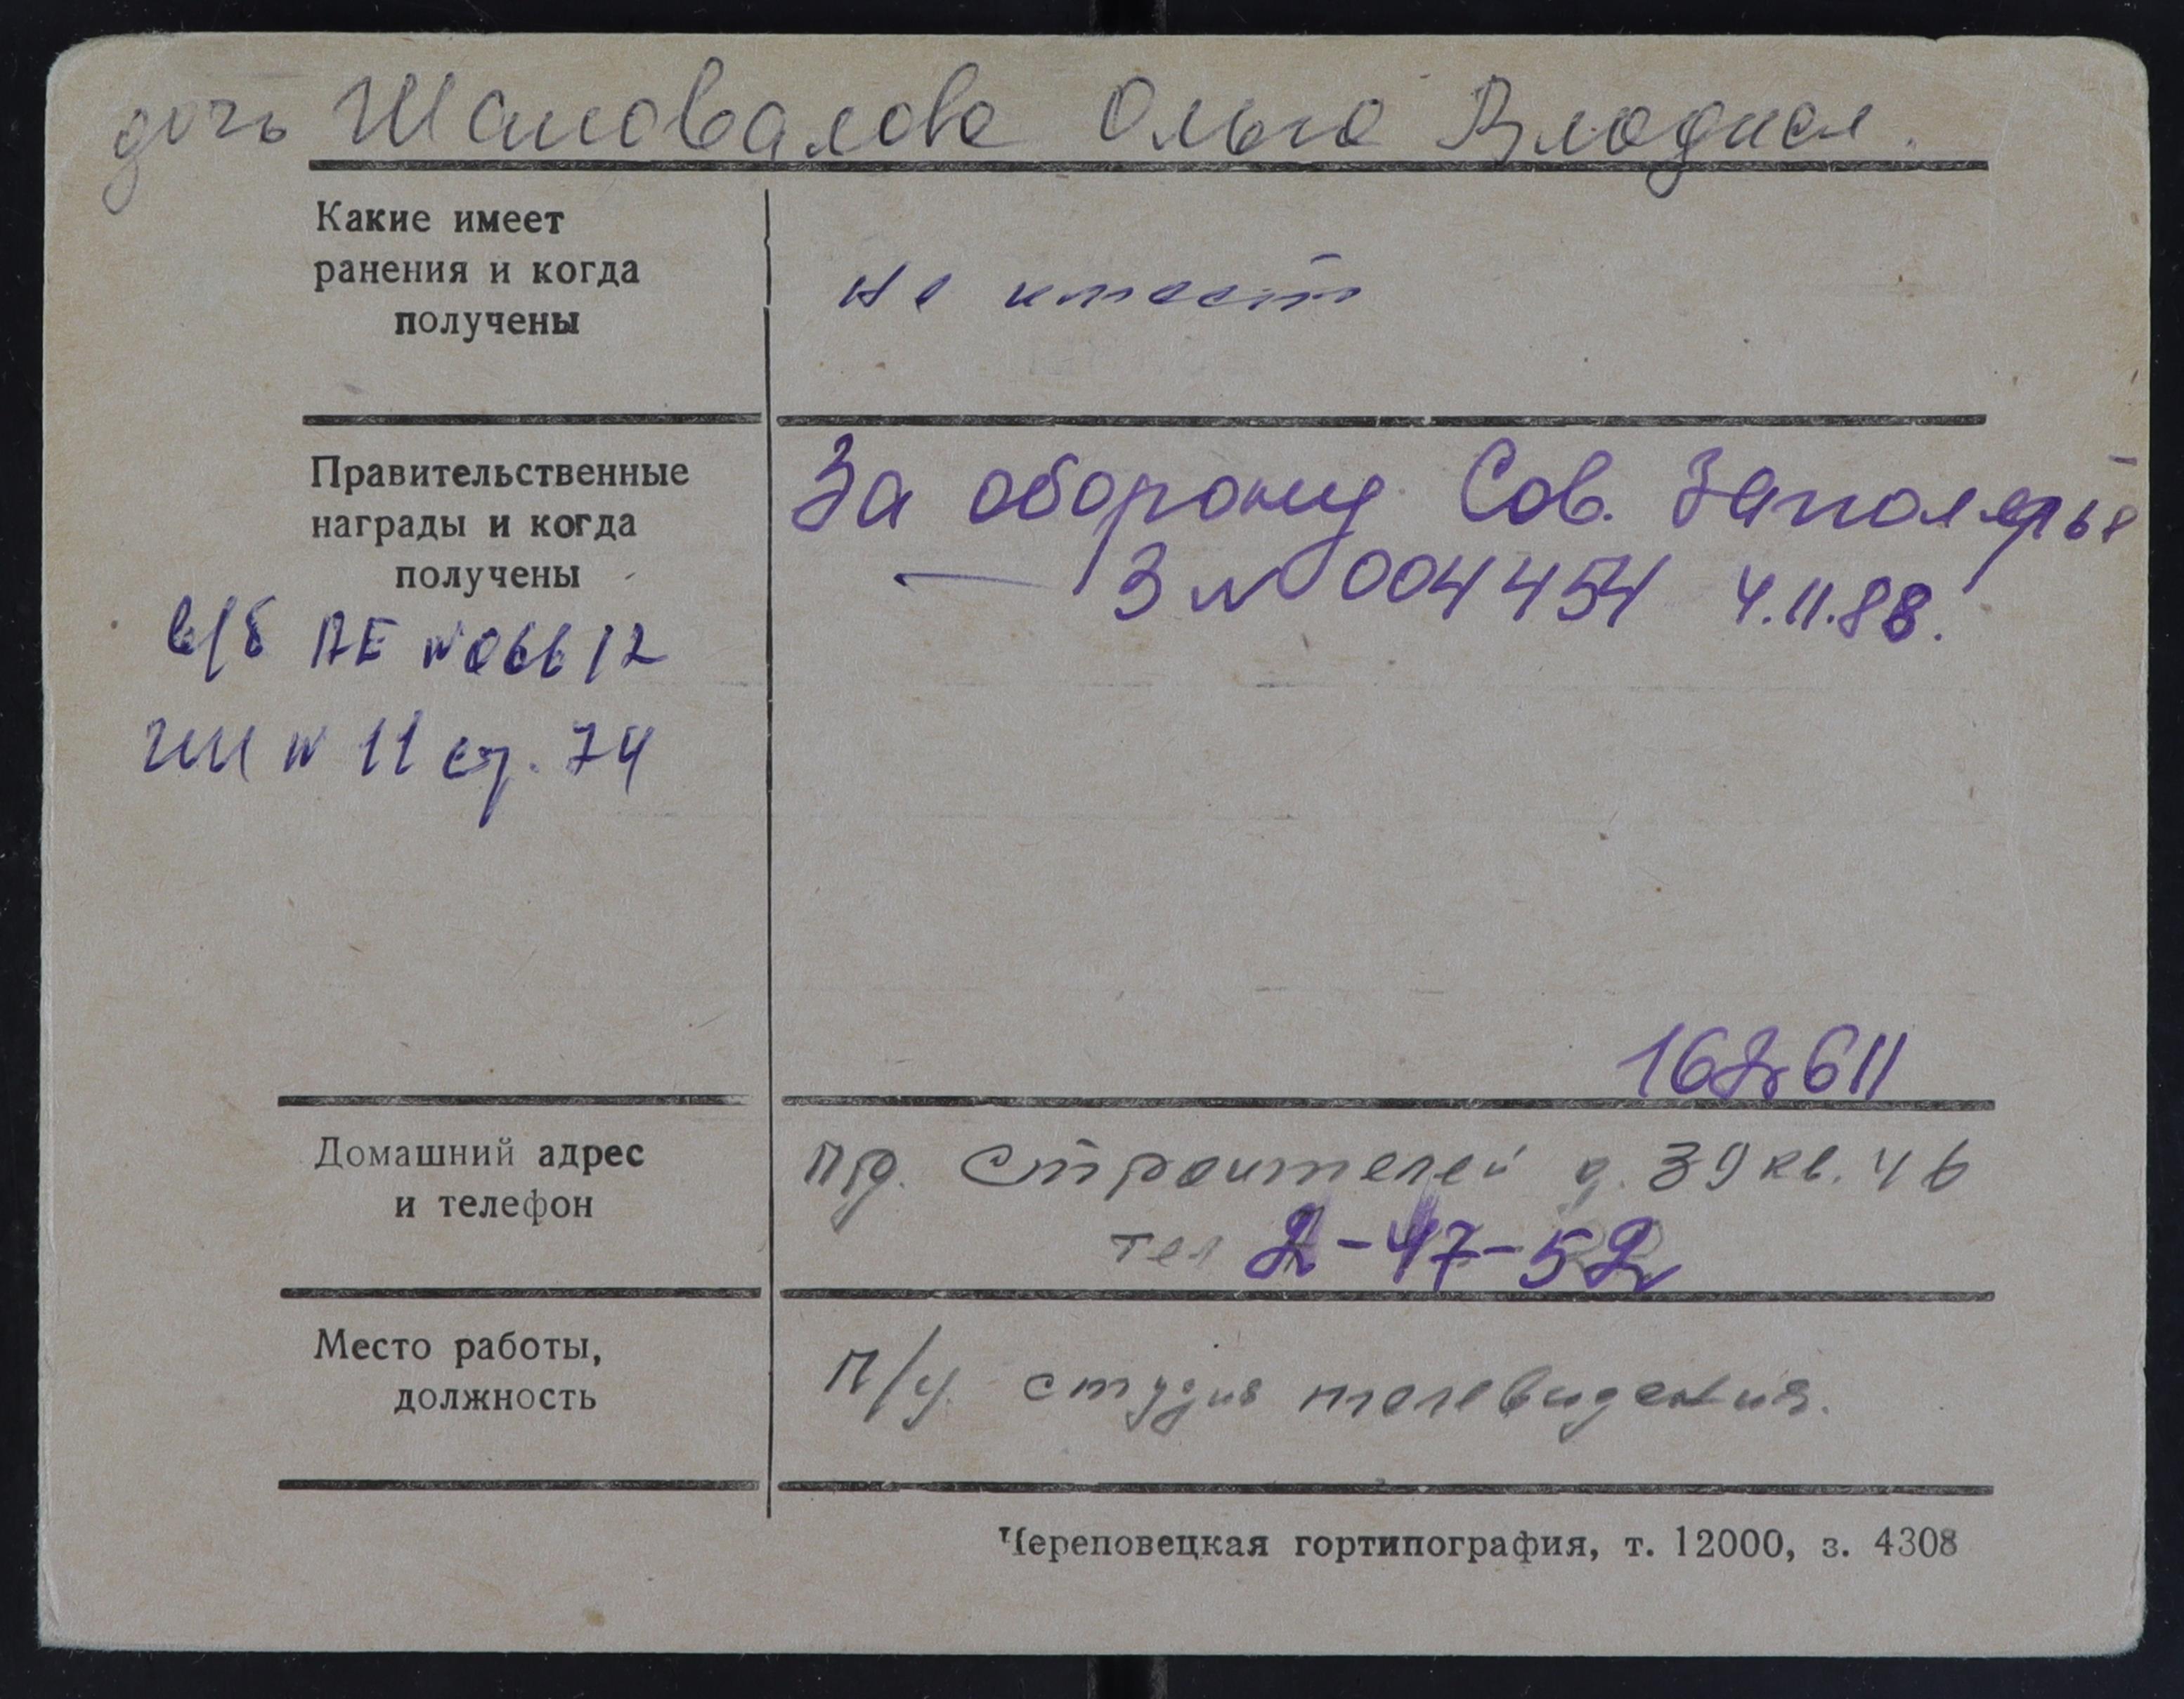 дочь Шаповалова Ольга Владисл.
Какие имеет
ранения и когда
получены
не имеет
Правительственные
награды и когда
получены
За оборону Сов. Заполярья
З № 004454 4.11.88.
в/б АЕ № 06612
и № 11 ст. 74
162611
Домашний адрес
и телефон
пр. Строителей д. 39 кв. 46
тел 2-47-52
Место работы,
должность
п/у. студия телевидения.
Череповецкая гортипография, т. 12000, з. 4308